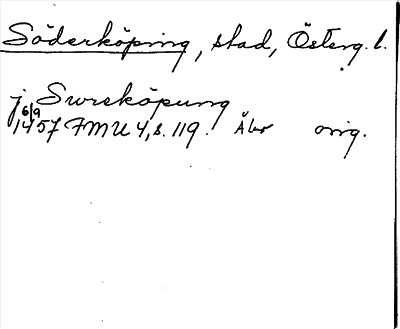 Söderköping, stad, Österg. l.
j Swreköpung
6/9
1457 FMU 4, s. 119. Åbo orig.